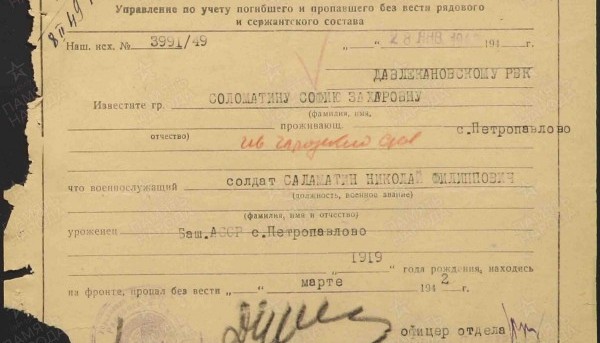 Управление по учету погибшего и пропавшего без вести рядового
и сержантского состава
8 II 49
Наш. исх. № 3991/49 „ “ 28 ЯНВ 194 г.
ДАВЛЕКАНОВСКОМУ РВК
Известите гр. СОЛОМАТИНУ СОФИЮ ЗАХАРОВНУ
(фамилия, имя,
отчество) проживающ. с.Петропавлово
что военнослужащий солдат САЛАМАТИН НИКОЛАЙ ФИЛИППОВИЧ
(должность, военное звание)
(фамилия, имя и отчество)
уроженец Баш.АССР с.Петропавлово
1919 года рождения, находясь
на фронте, пропал без вести „ “ марте 194 2
офицер отдела